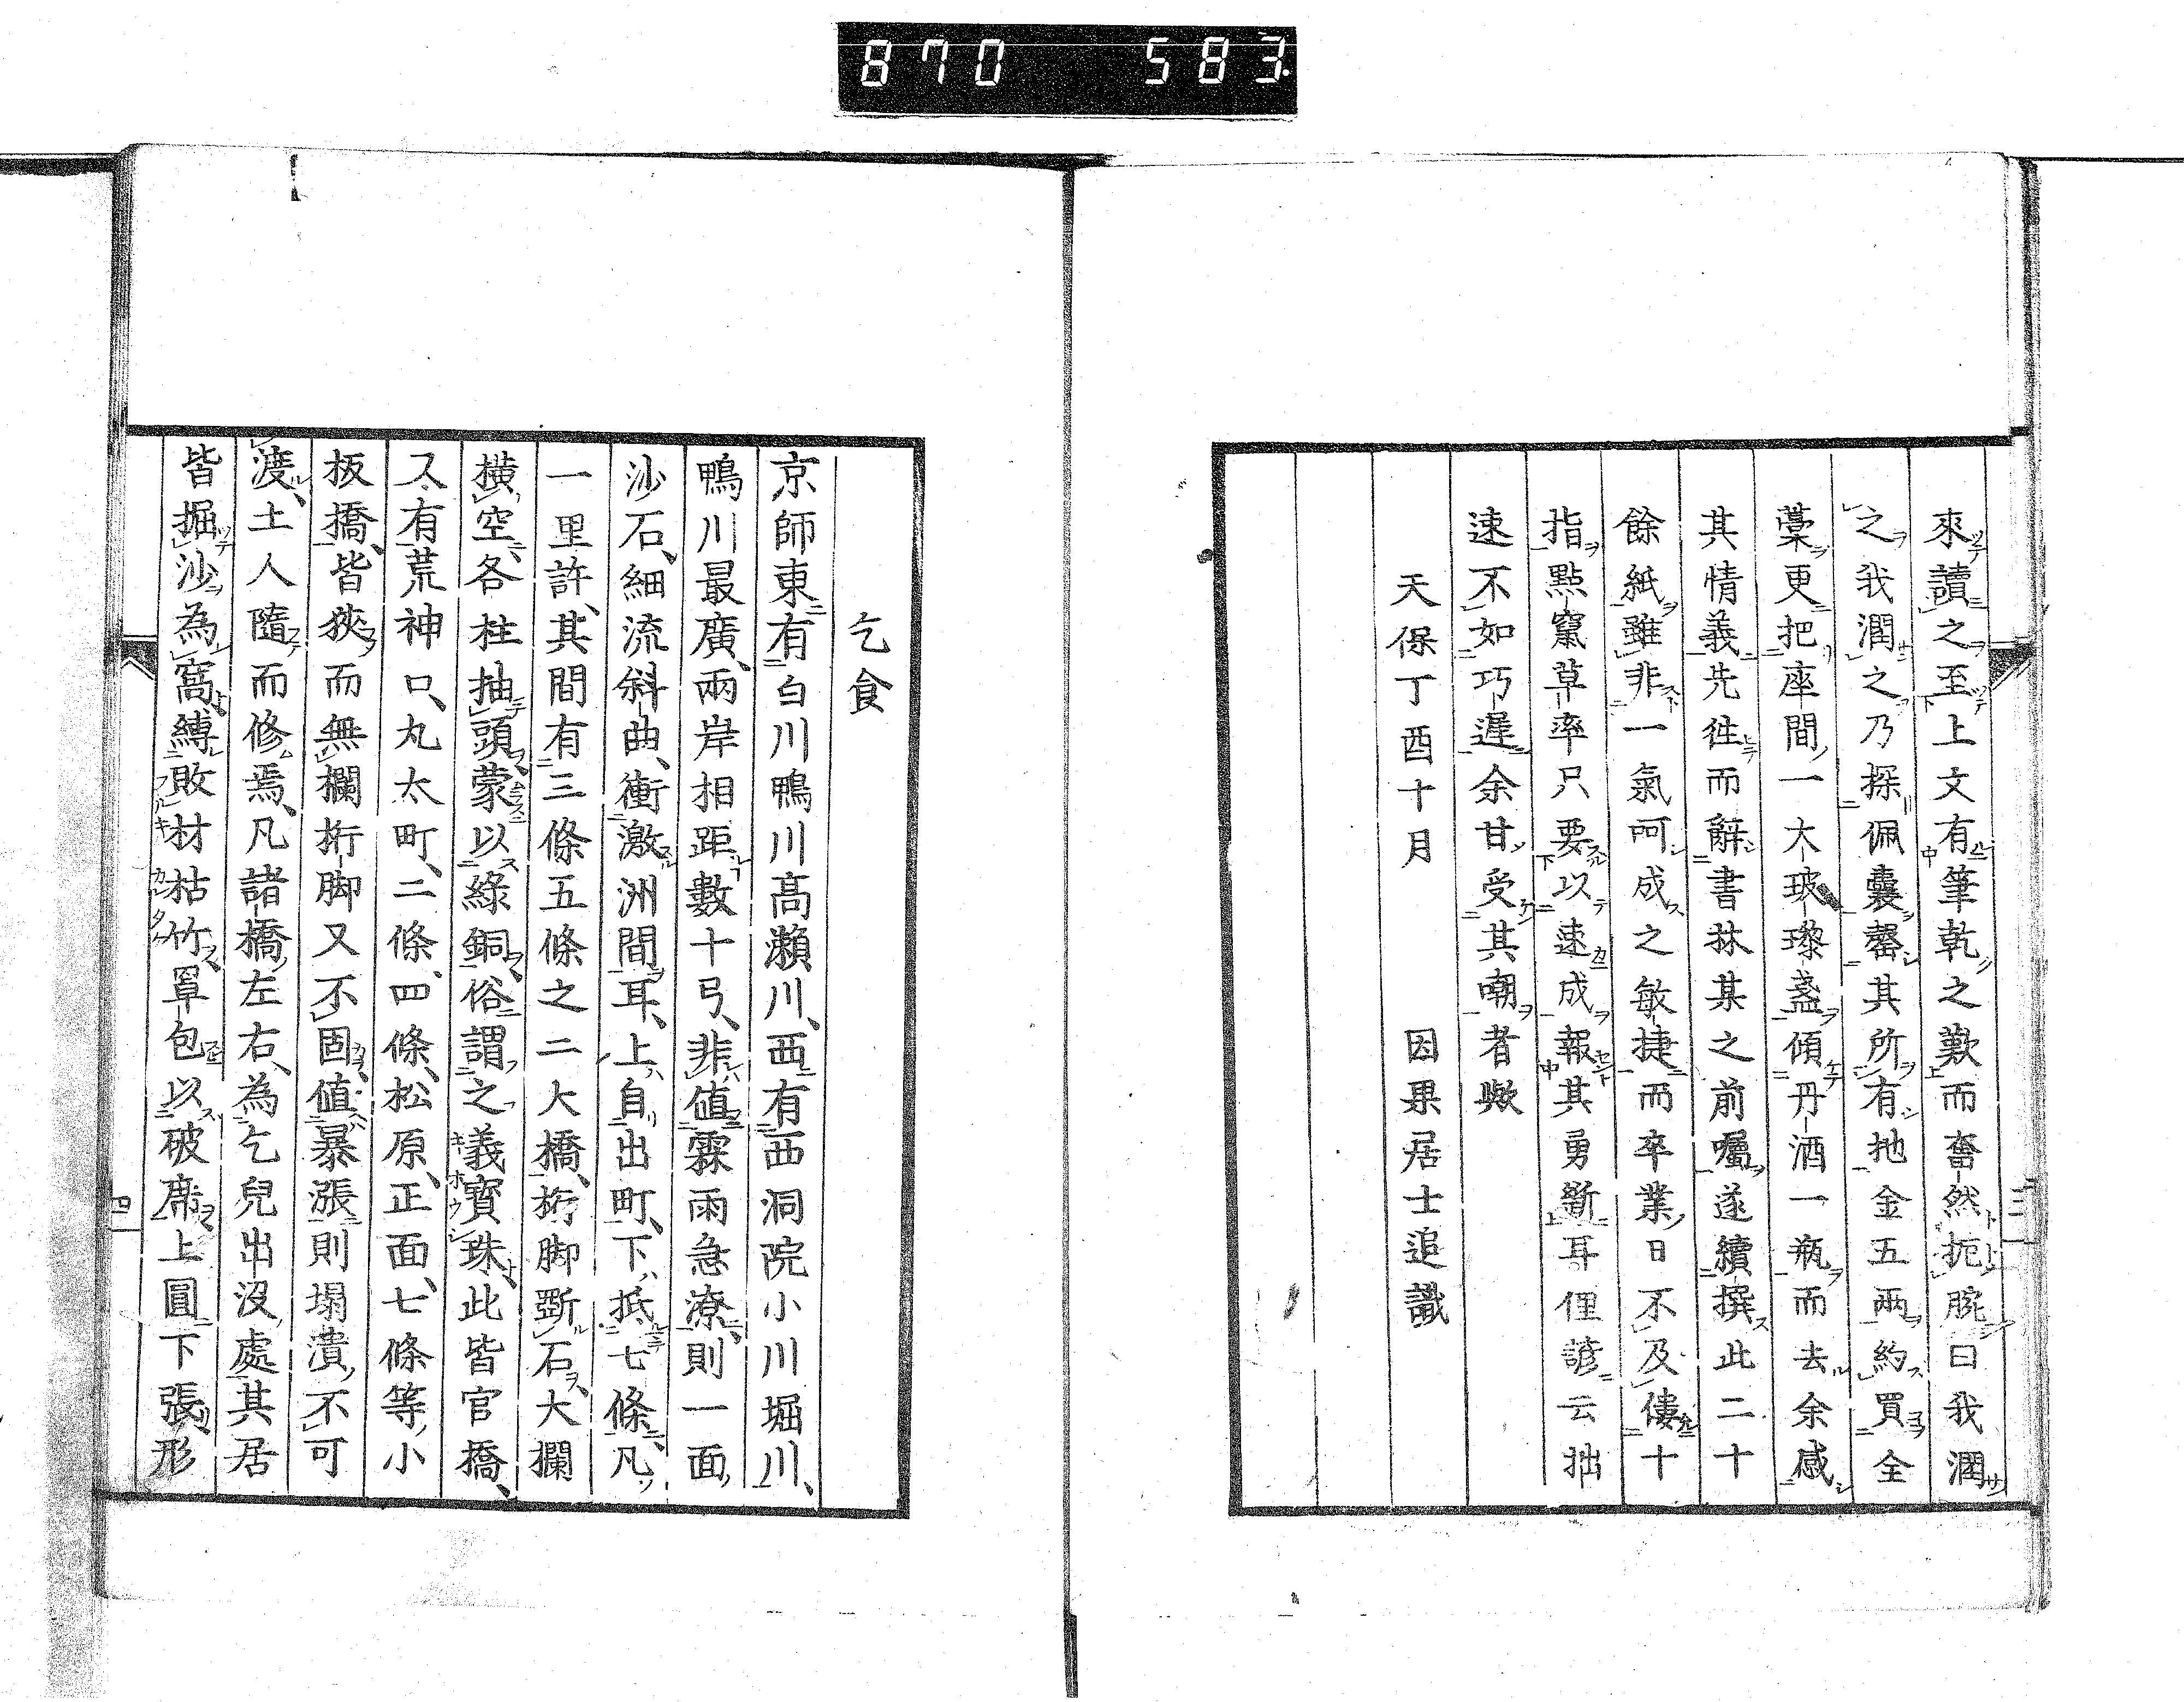 870 583
來讀之至上文有筆乾之歎而奮然扼腕曰我潤
之我潤之乃探佩囊罄其所有抛金五兩約買全
藁更把座間一大玻瓈盞傾丹酒一瓶而去余感
其情義先徃而辭書林某之前囑遂續撰此二十
餘紙雖非一氣呵成之敏捷而卒業日不及僂十
指點竄草率只要以速成報其勇斷耳俚諺云拙
速不如巧遲余甘受其嘲者歟
天保丁酉十月 因果居士追識
三
乞食
京師東有白川鴨川高瀨川、西有西洞院小川堀川、
鴨川最廣、兩岸相距數十弓、非値霖雨急潦、則一面
沙石、細流斜曲、衝激洲間耳、上自出町、下抵七條、凡
一里許、其間有三條五條之二大橋、桁脚斵石、大欄
橫空、各柱抽頭、蒙以綠銅、俗謂之義寳珠、此皆官橋、
又有荒神口、丸太町、二條、四條、松原、正面、七條等小
板橋、皆狹而無欄桁脚又不固、値暴漲則塌潰不可
渡、土人隨而修焉、凡諸橋左右、為乞兒出沒處其居
皆掘沙為窩、縛敗材枯竹、罩包以破席、上圓下張、形
四